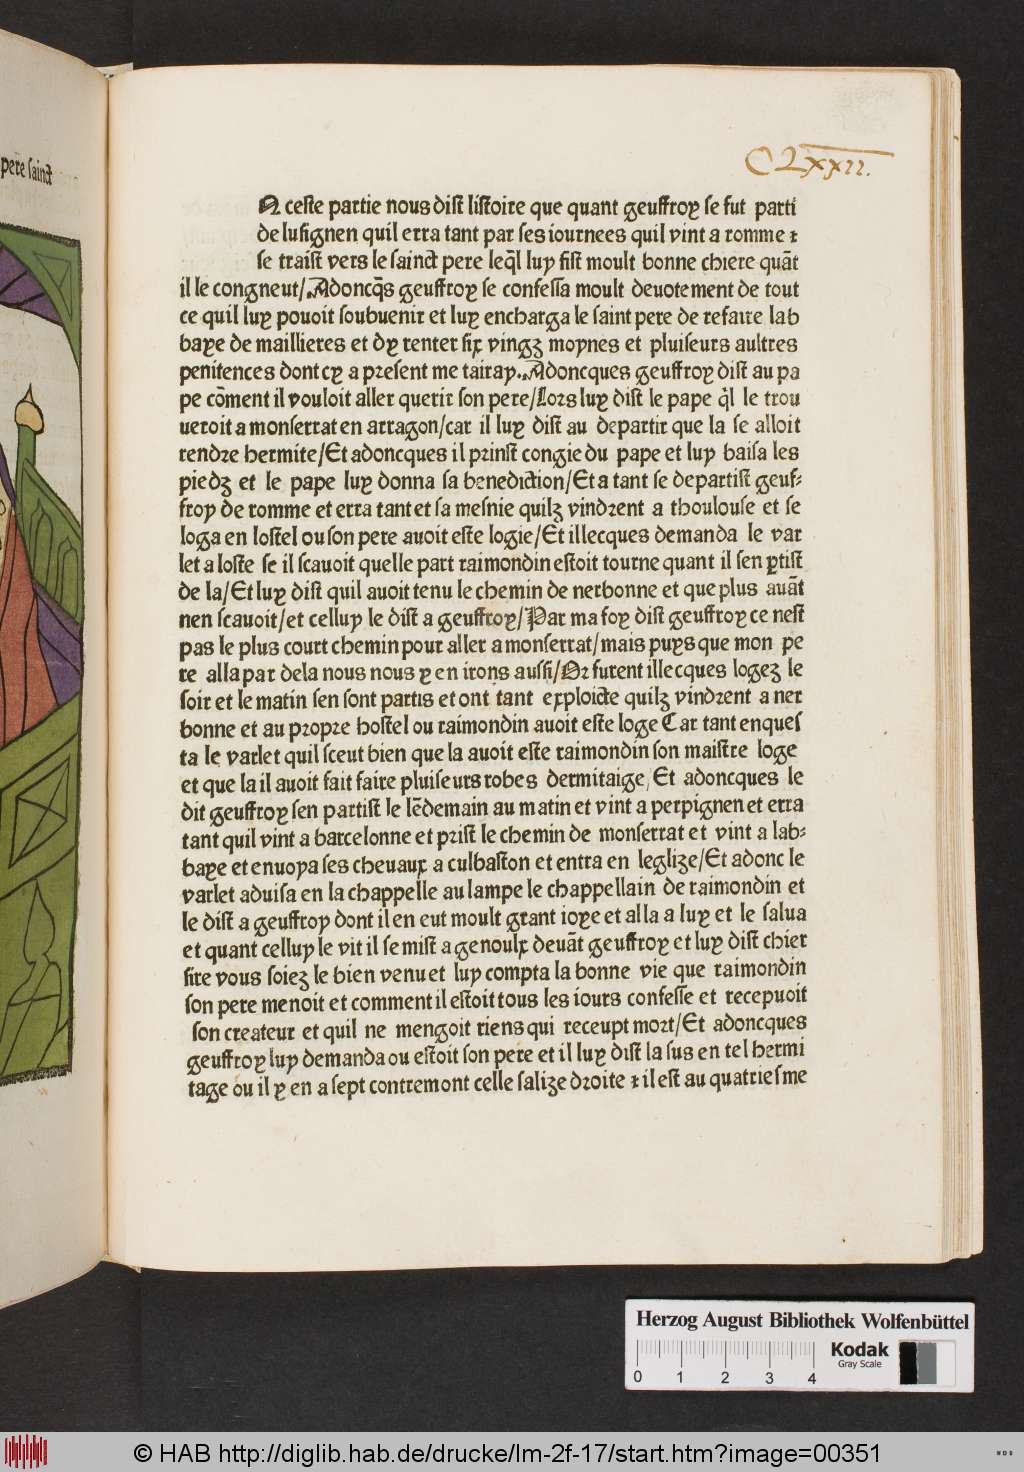 pere sainct
CLXXII.
N ceste partie nous dist listoire que quant geuffroy se fut parti
de lusignen quil erra tant par ses iournees quil vint a romme ⁊
se traist vers le sainct pere leq̄l luy fist moult bonne chiere quāt
il le congneut/Adoncq̄s geuffroy se confessa moult deuotement de tout
ce quil luy pouoit soubuenir et luy encharga le saint pere de refaire lab
baye de maillieres et dy renter six vingz moynes et pluiseurs aultres
penitences dont cy a present me tairay.Adoncques geuffroy dist au pa
pe cōment il vouloit aller querir son pere/Lors luy dist le pape q̄l le trou
ueroit a monserrat en arragon/car il luy dist au departir que la se alloit
rendre hermite/Et adoncques il prinst congie du pape et luy baisa les
piedz et le pape luy donna sa benediction/Et a tant se departist geuf⸗
froy de romme et erra tant et sa mesnie quilz vindrent a thoulouse et se
loga en lostel ou son pere auoit este logie/Et illecques demanda le var
let a loste se il scauoit quelle part raimondin estoit tourne quant il sen ꝑtist
de la/Et luy dist quil auoit tenu le chemin de nerbonne et que plus auāt
nen scauoit/et celluy le dist a geuffroy/Par ma foy dist geuffroy ce nest
pas le plus court chemin pour aller a monserrat/mais puys que mon pe
re alla par dela nous nous y en irons aussi/Or furent illecques logez le
soir et le matin sen sont partis et ont tant exploicte quilz vindrent a ner
bonne et au propre hostel ou raimondin auoit este loge Car tant enques
ta le varlet quil sceut bien que la auoit este raimondin son maistre loge
et que la il auoit fait faire pluiseurs robes dermitaige/Et adoncques le
dit geuffroy sen partist le lēdemain au matin et vint a perpignen et erra
tant quil vint a barcelonne et prist le chemin de monserrat et vint a lab⸗
baye et enuoya ses cheuaux a culbaston et entra en leglize/Et adonc le
varlet aduisa en la chappelle au lampe le chappellain de raimondin et
le dist a geuffroy dont il en eut moult grant ioye et alla a luy et le salua
et quant celluy le vit il se mist a genoulx deuāt geuffroy et luy dist chier
sire vous soiez le bien venu et luy compta la bonne vie que raimondin
son pere menoit et comment il estoit tous les iours confesse et recepuoit
son createur et quil ne mengoit riens qui receupt mort/Et adoncques
geuffroy luy demanda ou estoit son pere et il luy dist la sus en tel hermi
tage ou il y en a sept contremont celle falize droite ⁊ il est au quatriesme
Herzog August Bibliothek Wolfenbüttel
0 1 2 3 4
Kodak
Gray Scale
© HAB http://diglib.hab.de/drucke/lm-2f-17/start.htm?image=00351